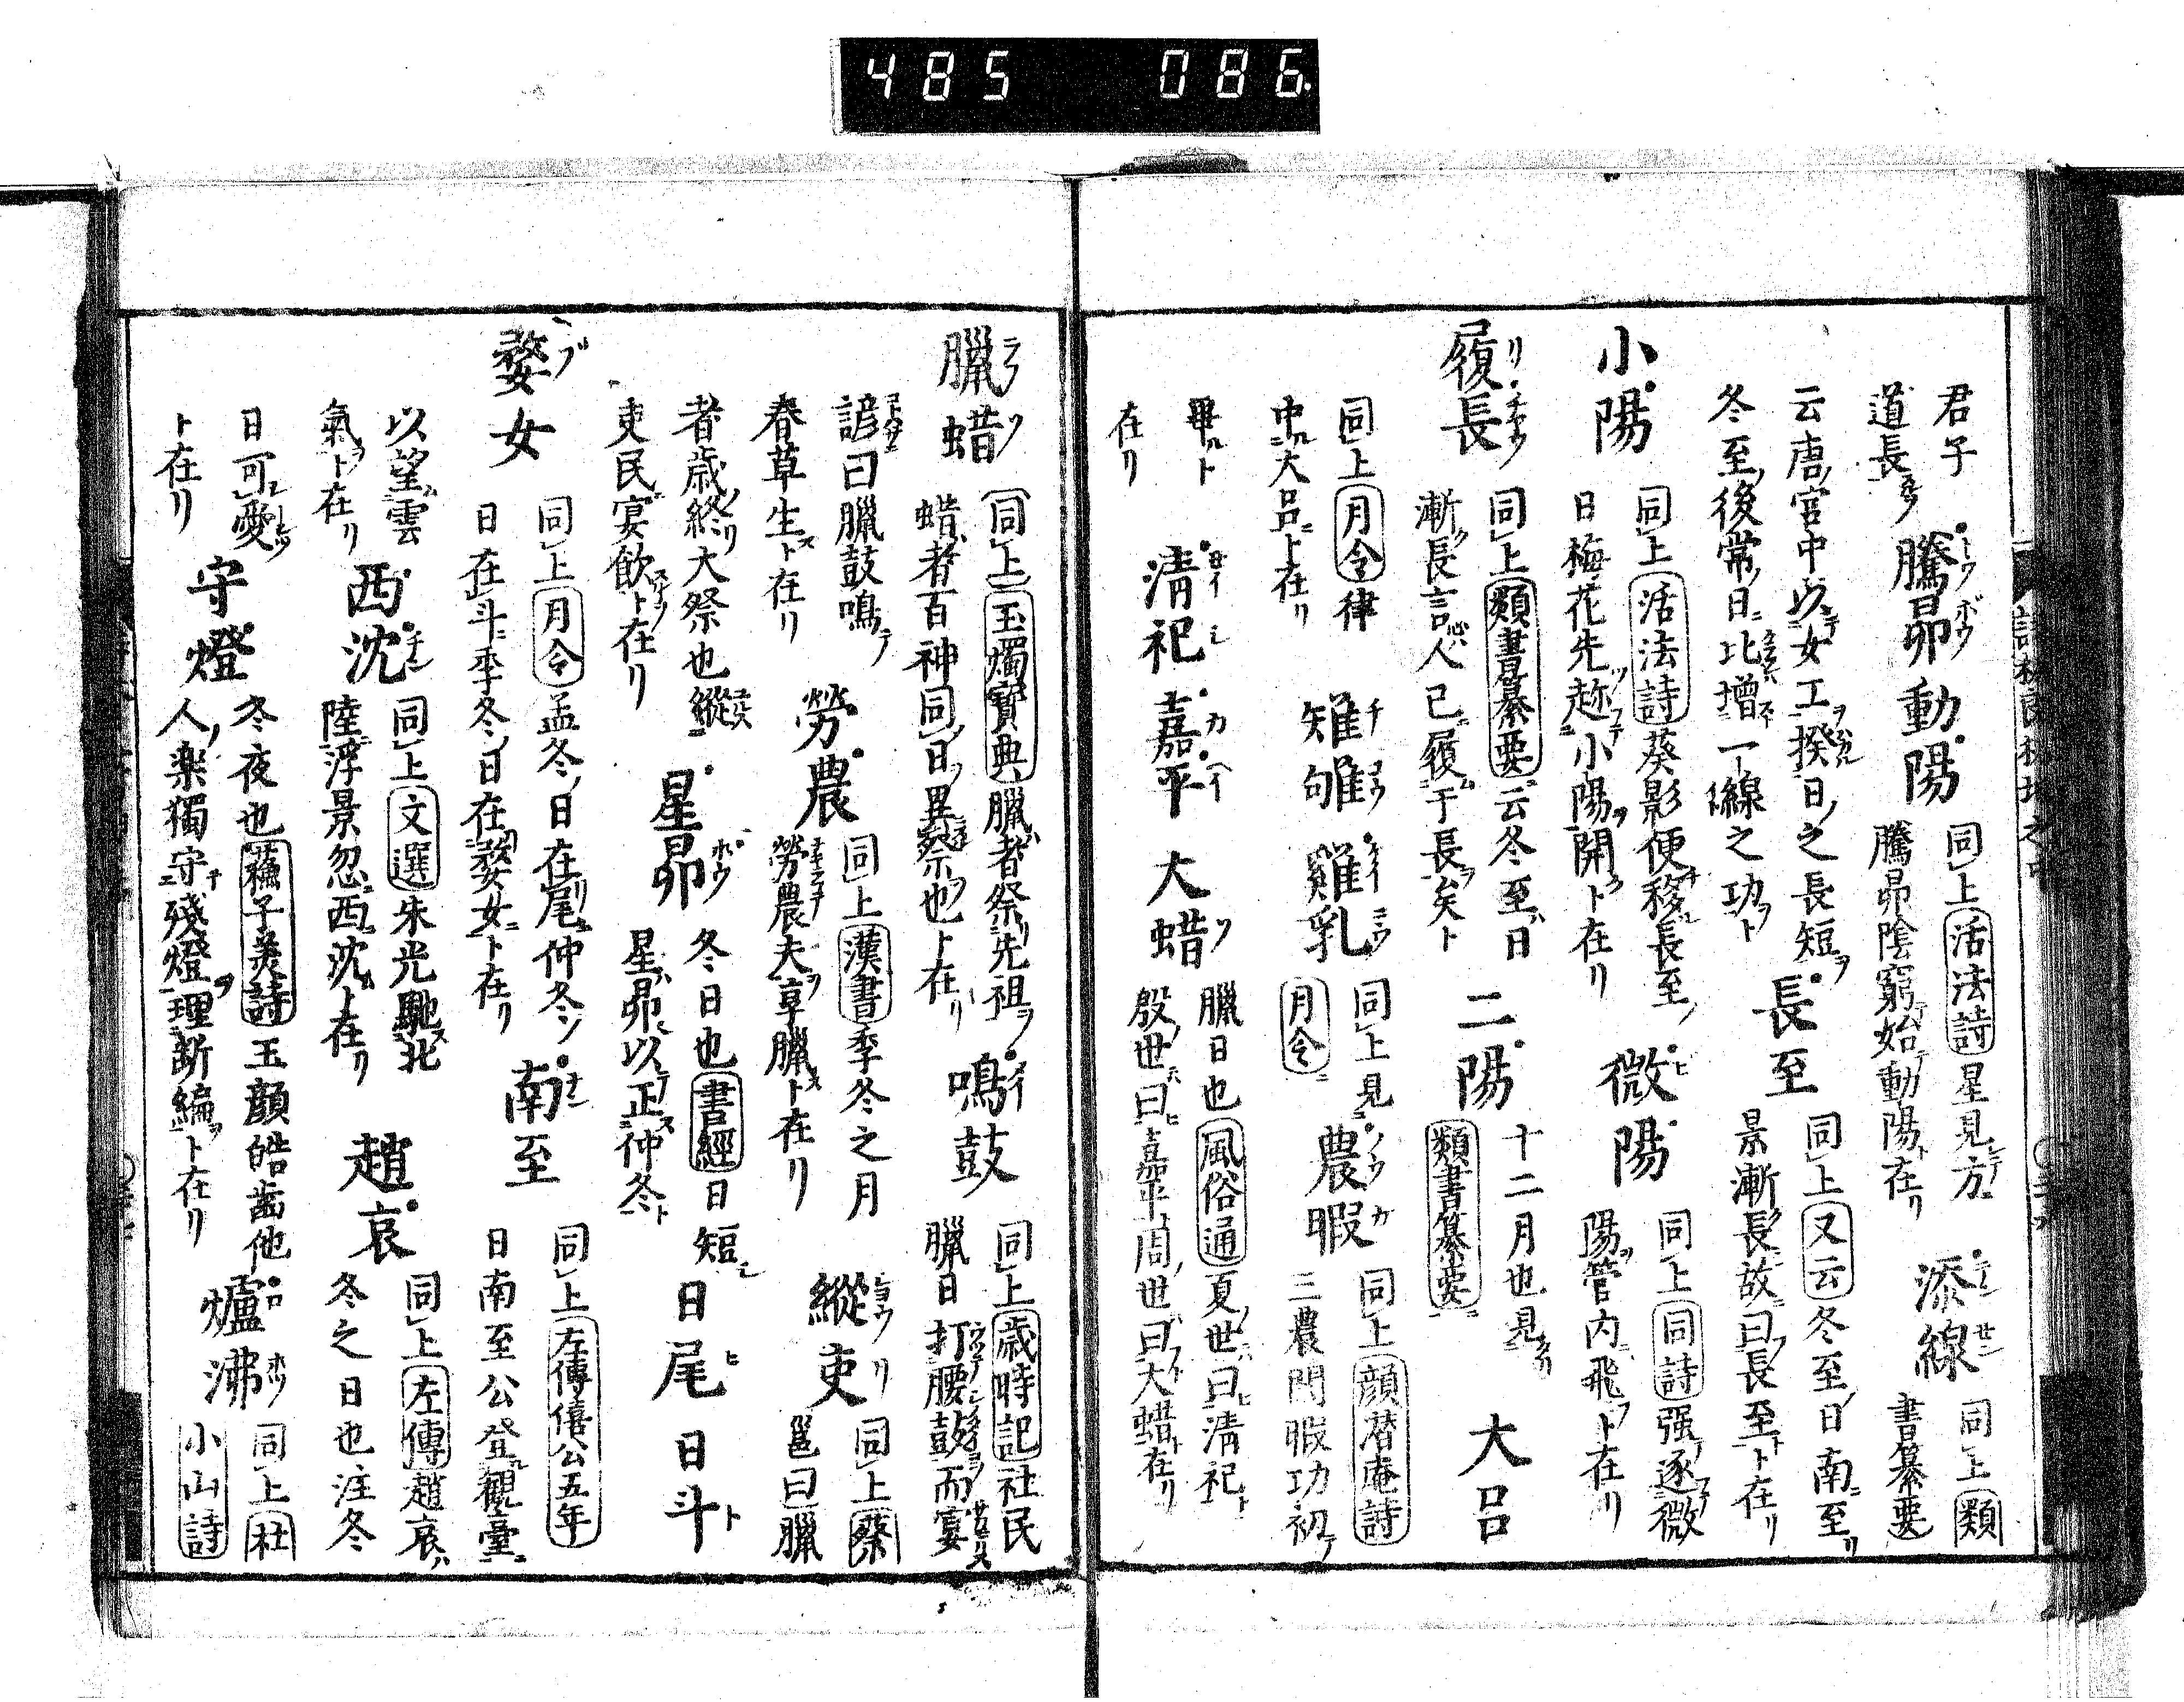 485 086
君子
道長
騰昴動陽
同上活法詩星見方
騰昴陰窮始動陽ト在リ
添線
同上類
書纂要
云唐宮中以女工揆日之長短ヲ
冬至後常日比増一線之功ト
長至
同上又云冬至日南至リ
景漸長故曰長至ト在リ
小陽
同上活法詩葵影便移長至
日梅花先趂小陽開ト在リ
微陽
同上同詩强逐微
陽管内飛ト在リ
履長
同上類書纂要云冬至日
漸長言人已履于長矣ト
二陽
十二月也見
類書纂要
大呂
同上月令律
中大呂ト在リ
雉雊
雞乳
同上見
月令
農暇
同上顔潜庵詩
三農閒暇功初
畢ト
在リ
清祀
嘉平
大蜡
臘日也風俗通夏世曰清祀
殷世曰嘉平周世曰大蜡ト在リ
臘蜡
同上玉燭寶典臘者祭先祖
蜡者百神同日異祭也ト在リ
鳴鼓
同上歳時記社民
臘日打腰鼓而宴
諺曰臘鼓鳴
春草生ト在リ
勞農
同上漢書季冬之月
勞農夫享臘ト在リ
縱吏
同上蔡
邕曰臘
者歳終大祭也縱
吏民宴飲ト在リ
星昴
冬日也書經日短
星昴以正仲冬ト
日尾
日斗
婺女
同上月令孟冬日在尾仲冬
日在斗季冬日在婺女ト在リ
南至
同上左傳僖公五年
日南至公登觀臺
以望雲
氣ト在リ
西沈
同上文選朱光馳北
陸浮景忽西沈ト在リ
趙哀
同上左傳趙哀
冬之日也注冬
日可愛
ト在リ
守燈
冬夜也蘓子美詩玉顔皓齒他
人楽獨守殘燈理斷編ト在リ
爐沸
同上社
小山詩